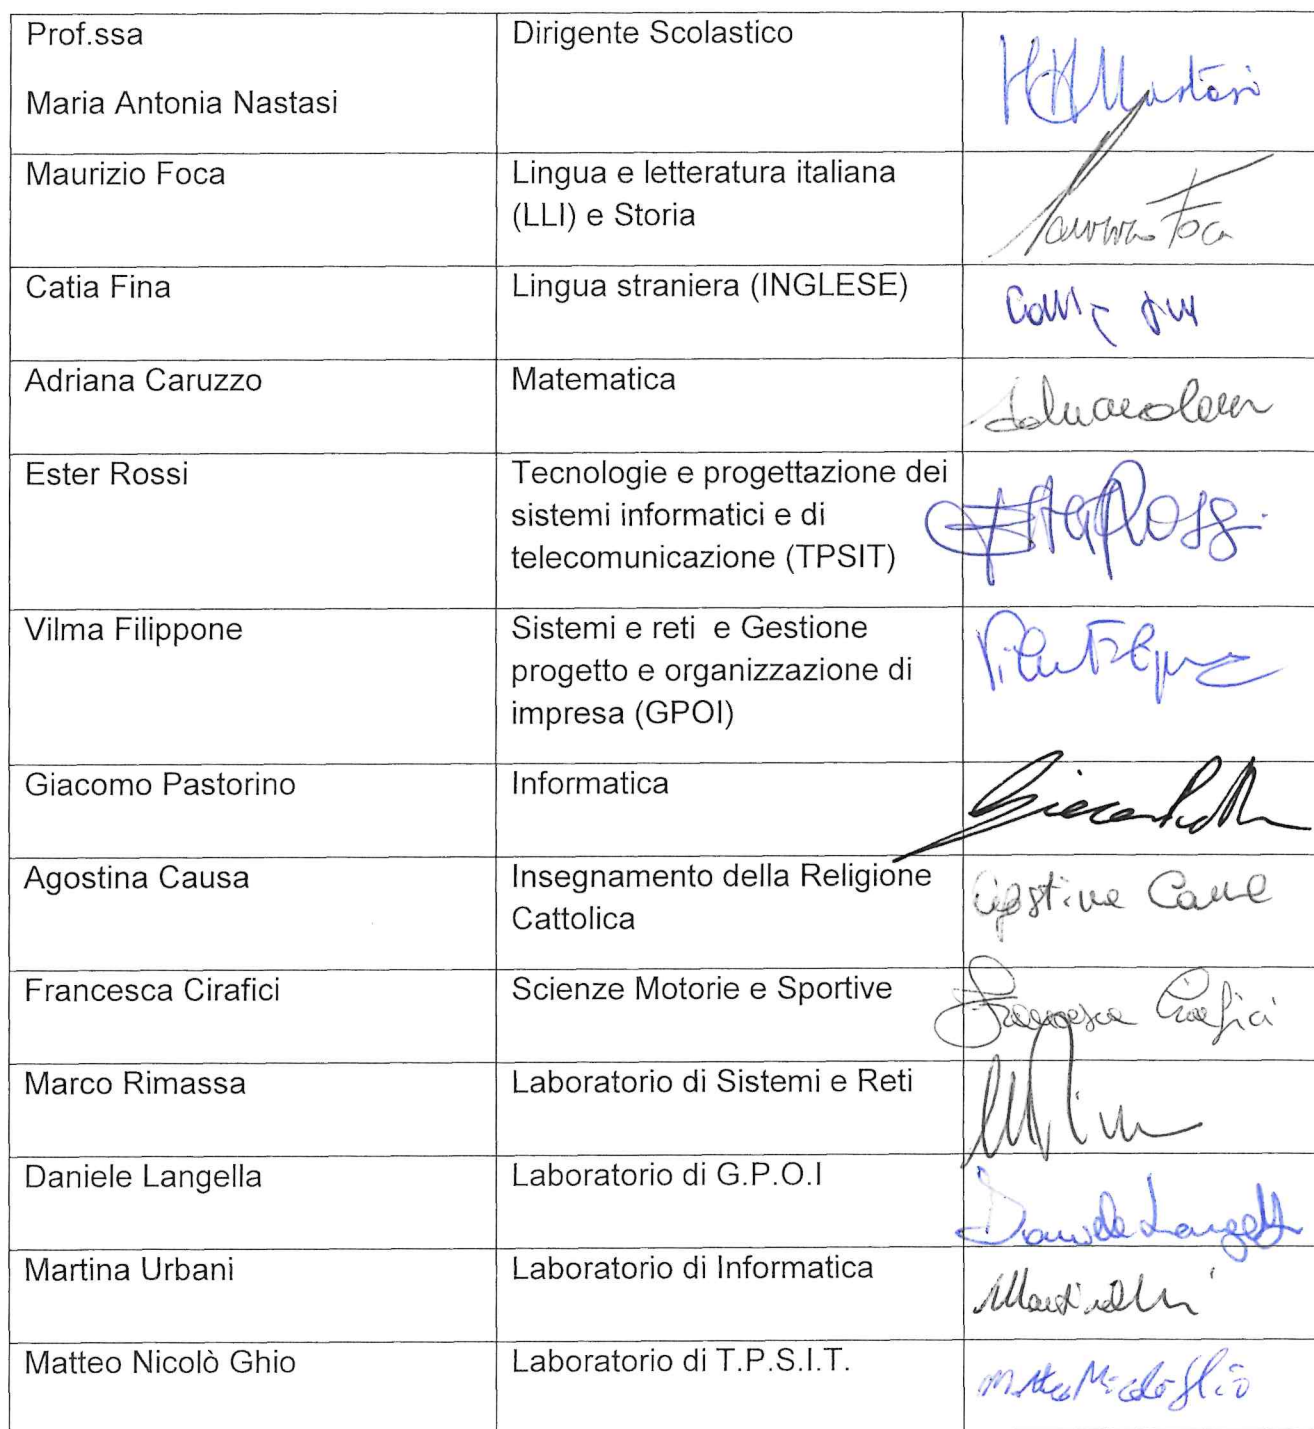 Prof.ssa
Maria Antonia Nastasi
Dirigente Scolastico
Maurizio Foca
Lingua e letteratura italiana
(LLI) e Storia
Foca
Catia Fina
Lingua straniera (INGLESE)
Adriana Caruzzo
Matematica
Ester Rossi
Tecnologie e progettazione dei
sistemi informatici e di
telecomunicazione (TPSIT)
Ester Rossi
Vilma Filippone
Sistemi e reti e Gestione
progetto e organizzazione di
impresa (GPOI)
Giacomo Pastorino
Informatica
Agostina Causa
Insegnamento della Religione
Cattolica
Agostina Causa
Francesca Cirafici
Scienze Motorie e Sportive
Francesca Cirafici
Marco Rimassa
Laboratorio di Sistemi e Reti
Daniele Langella
Laboratorio di G.P.O.I
Daniele Langella
Martina Urbani
Laboratorio di Informatica
Matteo Nicolò Ghio
Laboratorio di T.P.S.I.T.
Matteo Nicolò Ghio